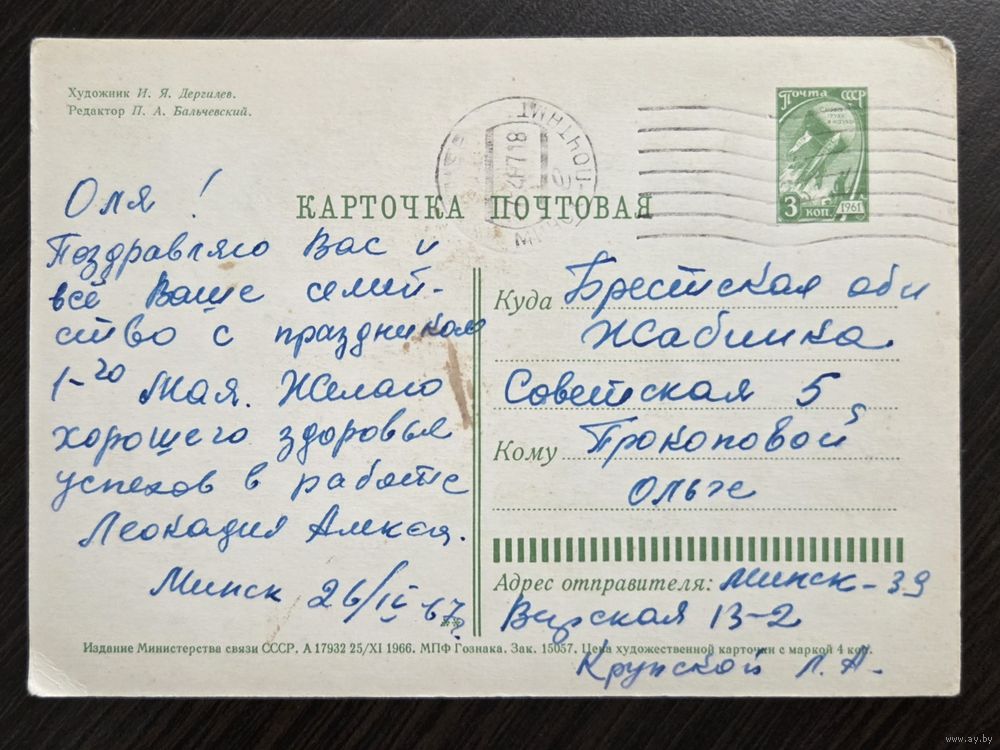 Художник И. Я. Дергилев.
Редактор П. А. Бальчевский.
Почта СССР
3 коп. 1961
КАРТОЧКА ПОЧТОВАЯ
Оля!
Поздравляю Вас и
всё Ваше семей-
ство с праздником
1-го Мая. Желаю
хорошего здоровья
успехов в работе
Леокадия
Минск 26/IV-67
Куда Брестская обл
Жабинка
Советская 5
Кому Прокоповой
Ольге
Адрес отправителя: Минск-39
13-2
Крупской Л. А.
Издание Министерства связи СССР. А 17932 25/XI 1966. МПФ Гознака. Зак. 15057. Цена художественной карточки с маркой 4 коп.
www.ay.by